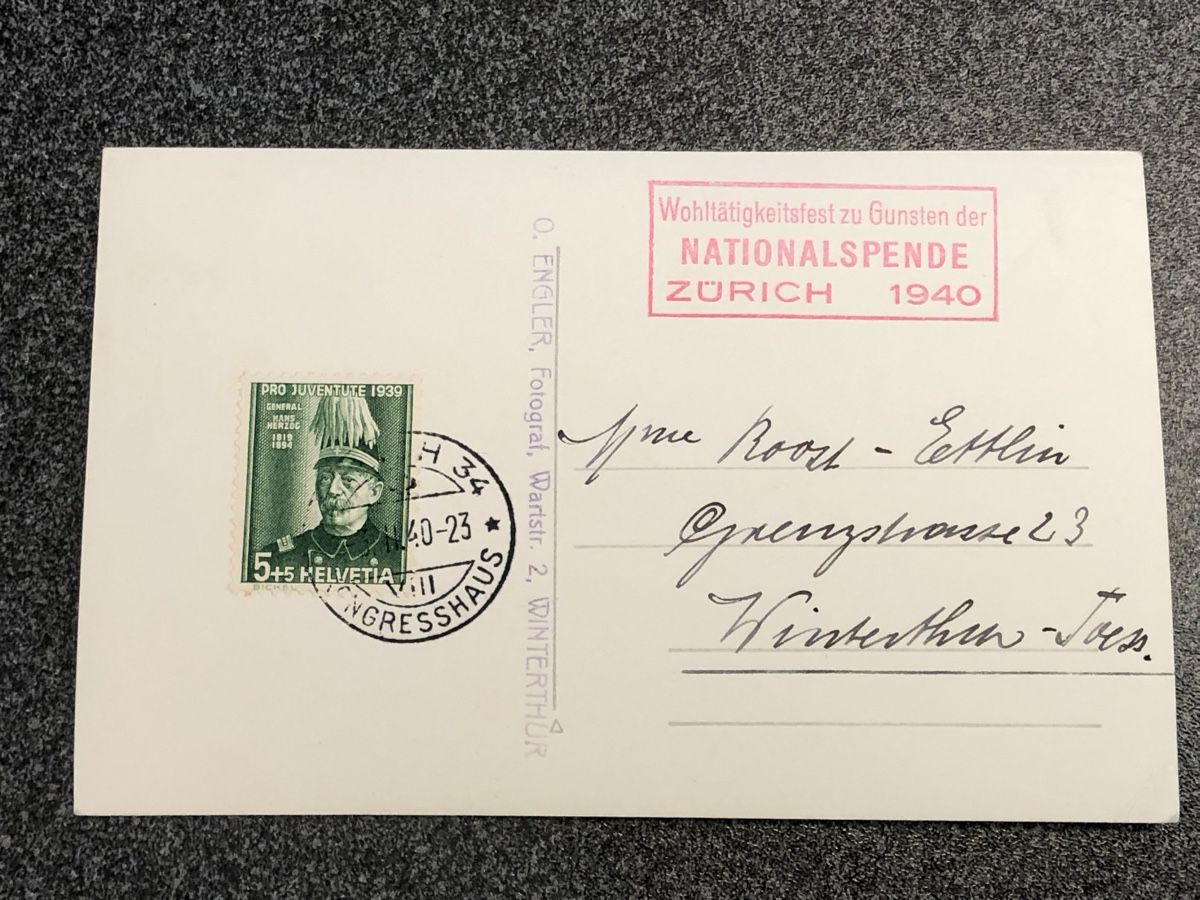 Wohltätigkeitsfest zu Gunsten der
NATIONALSPENDE
ZÜRICH 1940
O. ENGLER, Fotograf, Wartstr. 2, WINTERTHUR
PRO JUVENTUTE 1939
GENERAL
HANS
HERZOG
1819
1894
5+5 HELVETIA
BICKEL
H 34
40-23
VIII
NGRESSHAUS
Mme Roost - Ettlin
Grenzstrasse 23
Winterthur - Toess.